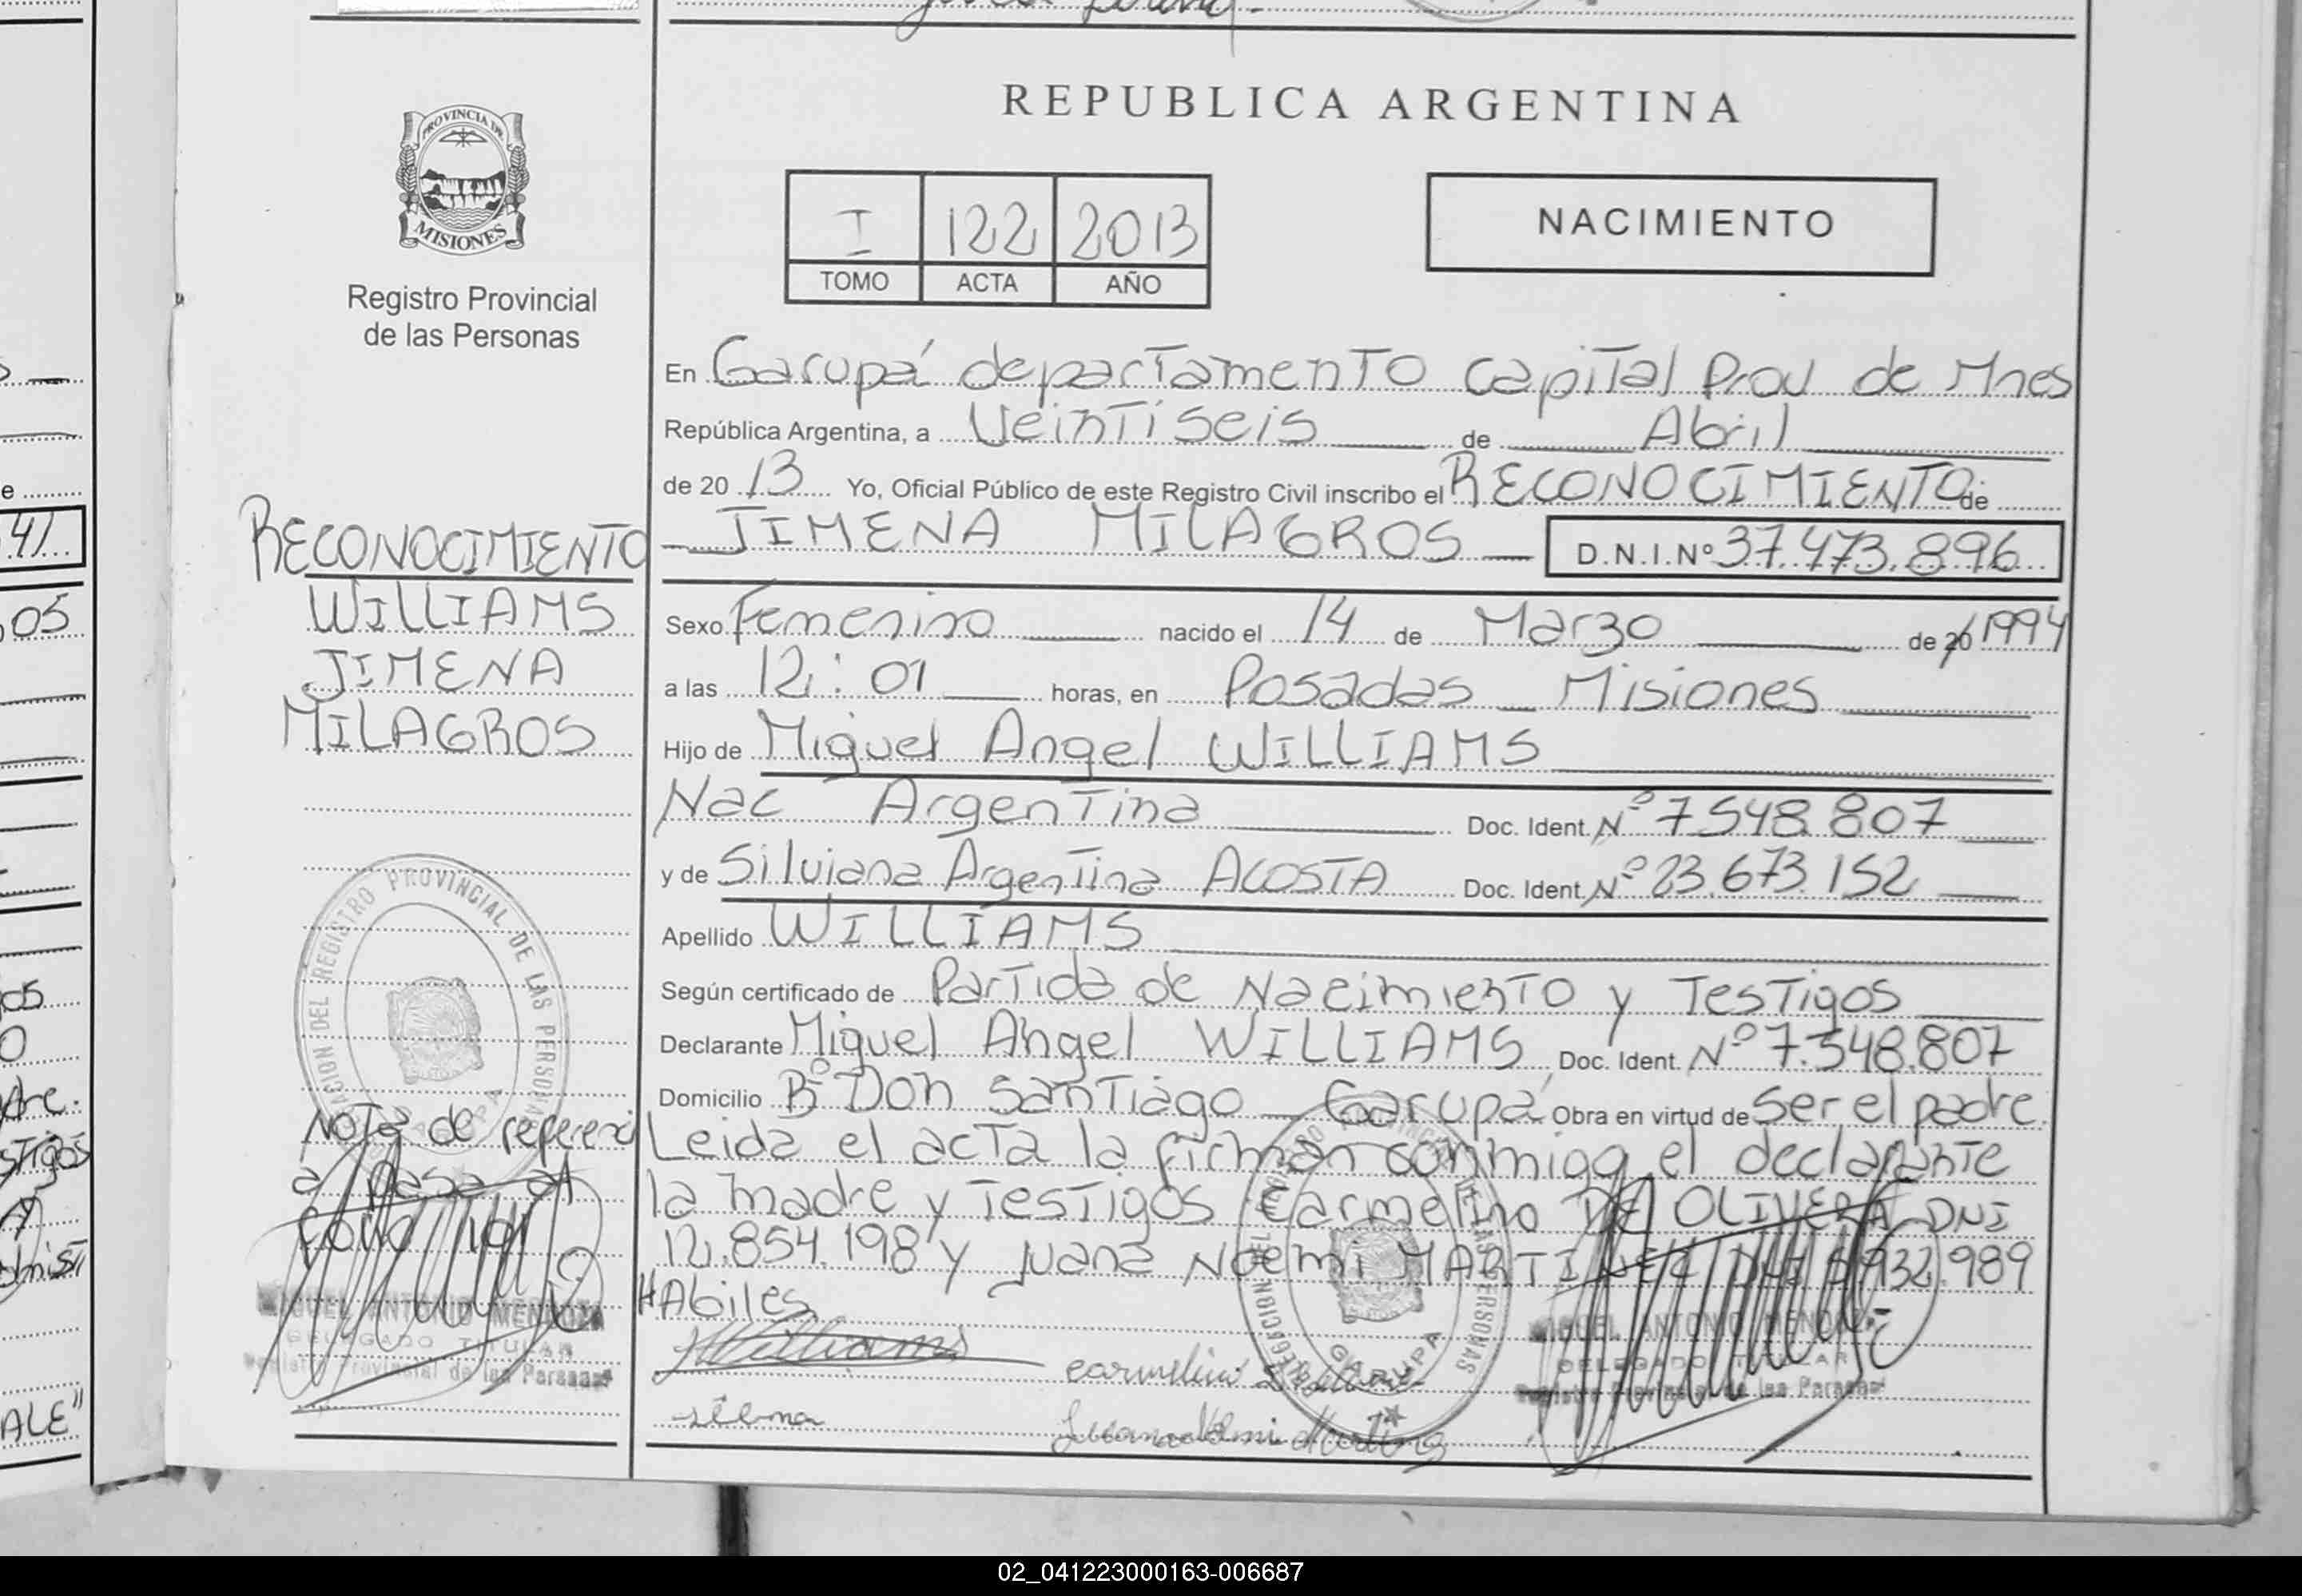 REPUBLICA ARGENTINA
PROVINCIA DE
MISIONES
Registro Provincial
de las Personas
I 122 2013
TOMO ACTA AÑO
NACIMIENTO
En Garupá departamento Capital Prov de Mnes
República Argentina, a Veintiseis de Abril
de 20 13 Yo, Oficial Público de este Registro Civil inscribo el RECONOCIMIENTO de
JIMENA MILAGROS D.N.I.Nº 37.473.896
RECONOCIMIENTO
WILLIAMS
JIMENA
MILAGROS
Sexo Femenino nacido el 14 de Marzo de 20 1994
a las 12:01 horas, en Posadas Misiones
Hijo de Miguel Angel WILLIAMS
Nac Argentina Doc. Ident. Nº 7548.807
y de Silviana Argentina ACOSTA Doc. Ident. Nº 23.673.152
Apellido WILLIAMS
Según certificado de Partida de Nacimiento y Testigos
Declarante Miguel Angel WILLIAMS Doc. Ident. Nº 7.548.807
Domicilio Bº Don Santiago Garupá Obra en virtud de Ser el padre
Leida el acta la firman conmigo el declarante
la madre y Testigos Carmelino DE OLIVERA DNI
12.854.198 y Juana Noemi MARTINEZ DNI 932.989
HAbiles
DELEGACION DEL REGISTRO PROVINCIAL DE LAS PERSONAS
Nota de referenci
a pasa al
MIGUEL ANTONIO MENDOZA
DELEGADO TITULAR
Registro Provincial de las Personas
Williams
GARUPA
MIGUEL ANTONIO MENDOZA
DELEGADO TITULAR
Registro Provincial de las Personas
Juana Noemi Martinez
41
05
ALE"
02_041223000163-006687